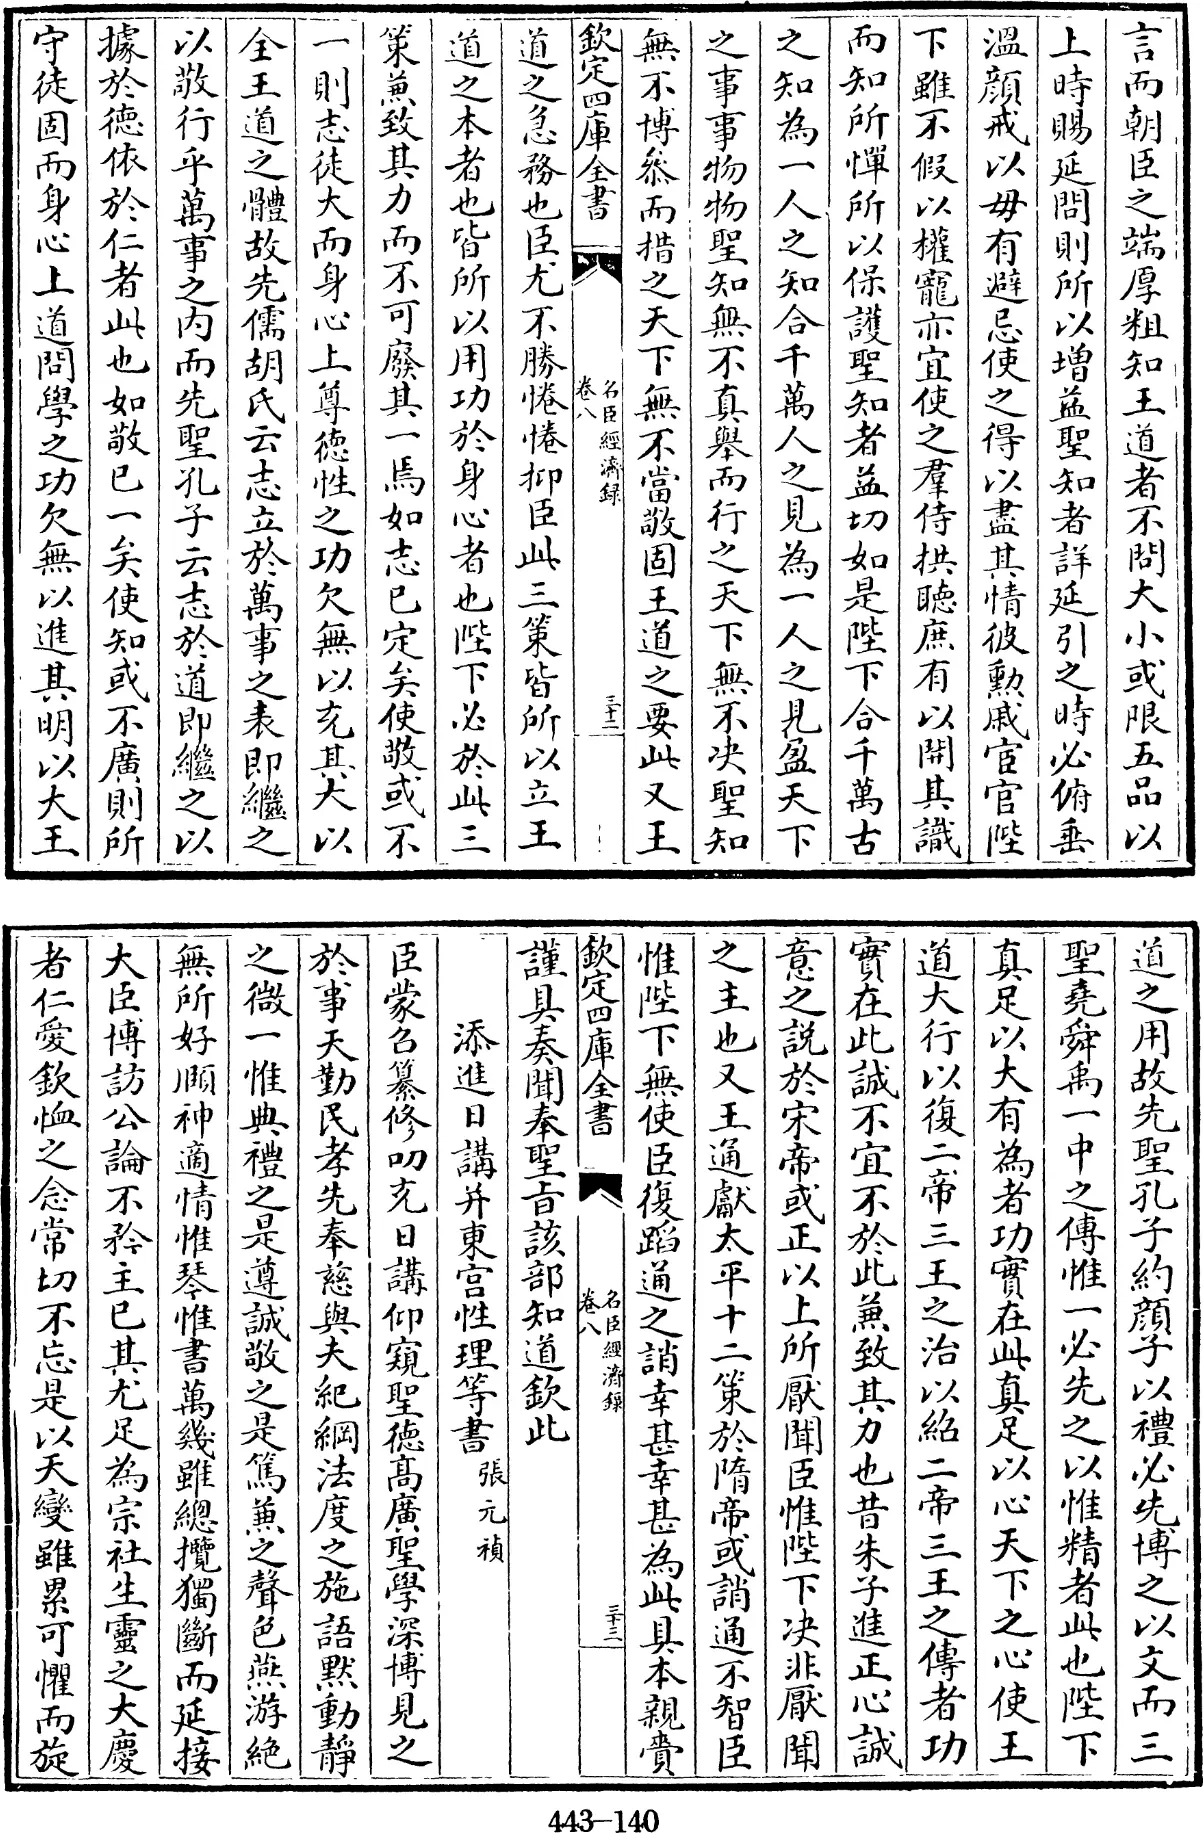 言而朝臣之端厚粗知王道者不問大小或限五品以
上時賜延問則所以增益聖知者詳延引之時必俯垂
溫顔戒以毋有避忌使之得以盡其情彼勲戚宦官陛
下雖不假以權寵亦宜使之羣侍拱聴庶有以開其識
而知所憚所以保護聖知者益切如是陛下合千萬古
之知為一人之知合千萬人之見為一人之見盈天下
之事事物物聖知無不真舉而行之天下無不决聖知
無不博叅而措之天下無不當敬固王道之要此又王
欽定四庫全書
名臣經濟録
卷八
三十二
道之急務也臣尤不勝惓惓抑臣此三策皆所以立王
道之本者也皆所以用功於身心者也陛下必於此三
策兼致其力而不可廢其一焉如志已定矣使敬或不
一則志徒大而身心上尊徳性之功欠無以充其大以
全王道之體故先儒胡氏云志立於萬事之表即繼之
以敬行乎萬事之内而先聖孔子云志於道即繼之以
據於徳依於仁者此也如敬已一矣使知或不廣則所
守徒固而身心上道問學之功欠無以進其明以大王
道之用故先聖孔子約顔子以禮必先博之以文而三
聖堯舜禹一中之傳惟一必先之以惟精者此也陛下
真足以大有為者功實在此真足以心天下之心使王
道大行以復二帝三王之治以紹二帝三王之傳者功
實在此誠不宜不於此兼致其力也昔朱子進正心誠
意之説於宋帝或正以上所厭聞臣惟陛下决非厭聞
之主也又王通獻太平十二策於隋帝或誚通不智臣
惟陛下無使臣復蹈通之誚幸甚幸甚為此具本親賫
欽定四庫全書
名臣經濟録
卷八
三十三
謹具奏聞奉聖旨該部知道欽此
添進日講并東宫性理等書張元禎
臣蒙召纂修叨充日講仰窺聖徳髙廣聖學深博見之
於事天勤民孝先奉慈與夫紀綱法度之施語黙動靜
之微一惟典禮之是遵誠敬之是篤兼之聲色燕游絶
無所好頤神適情惟琴惟書萬幾雖總攬獨斷而延接
大臣博訪公論不矜主已其尤足為宗社生靈之大慶
者仁愛欽恤之念常切不忘是以天變雖累可懼而旋
443-140